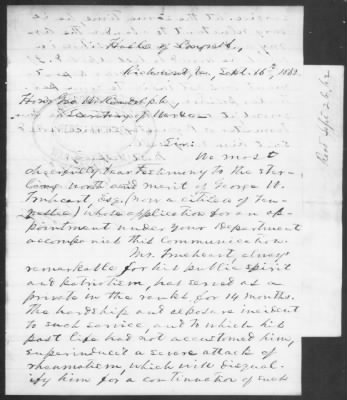 Halls of Congress,
Richmond, Va, Sept. 16th, 1862
Hon. Geo. W. Randolph,
Secretary of War
Sir:
We most
cheerfully bear testimony to the ster-
ling worth and merit of George W.
Trueheart, Esq, (now a citizen of Ten-
nessee) whose application for an ap-
pointment under your Department
accompanies this communication.
Mr. Trueheart, always
remarkable for his public spirit
and patriotism, has served as a
private in the ranks for 14 months.
The hardship and exposure incident
to such service, and to which his
past life had not accustomed him,
superinduced a severe attack of
rheumatism, which will disqual-
ify him for a continuation of such
Recd Sept 26/62